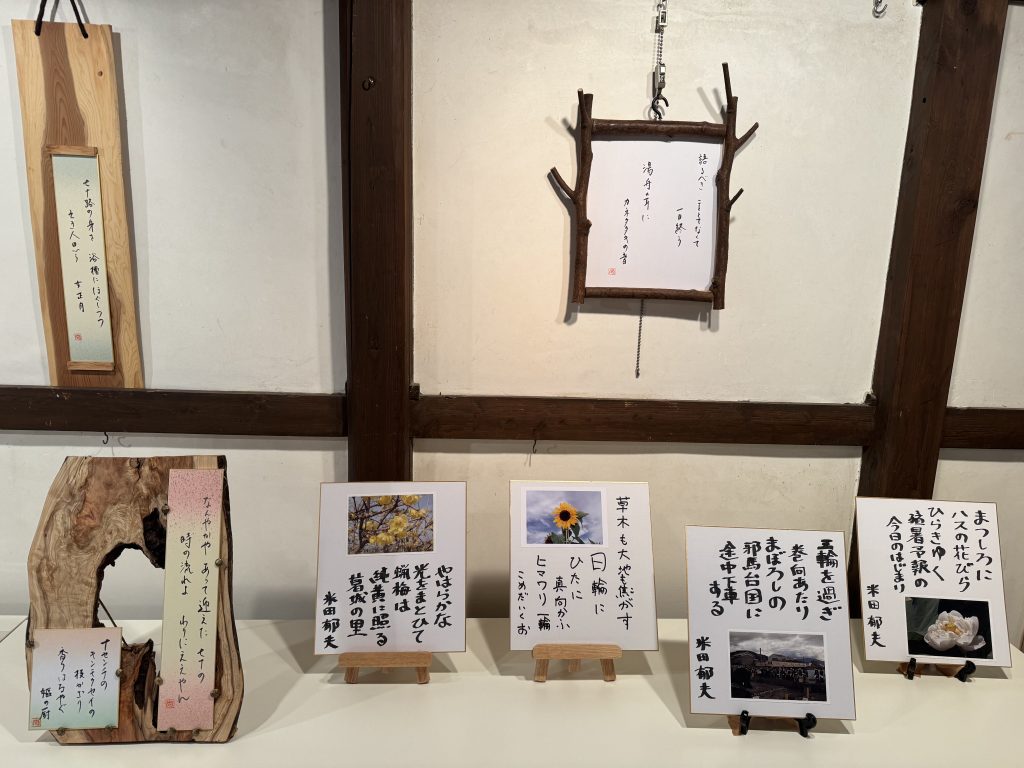 七十路の身を 浴槽にほぐしつつ
女正月
語るべき こともなくて
一日終う
湯舟の身に
カネタタキの音
なんやかや あって迎えた 七十の
時の流れよ わりにええやん
キンモクセイの
やはらかな
光をまとひて
蝋梅は
純黄に照る
葛城の里
米田郁夫
草木も大地も焦がす
日輪に
ひたに真向かふ
ヒマワリ一輪
こめだいくお
三輪を過ぎ
巻向あたり
まぼろしの
邪馬台国に
途中下車する
米田郁夫
まつしろに
ハスの花びら
ひらきゆく
猛暑予報の
今日のはじまり
米田郁夫